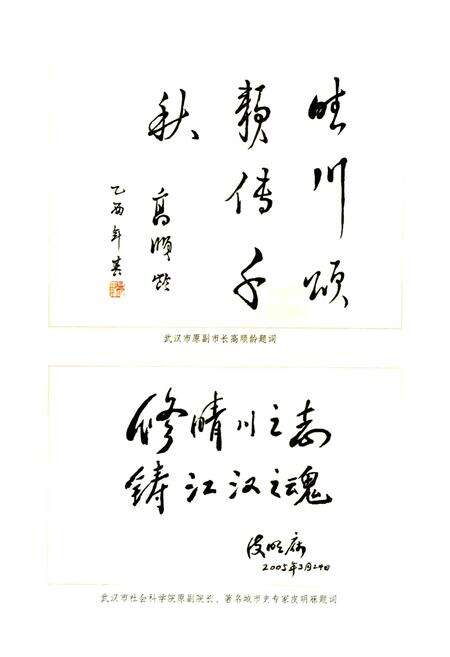 晴川颂
赖传千
秋
高顺龄
乙酉年春
武汉市原副市长高顺龄题词
修晴川之志
铸江汉之魂
皮明庥
2005年3月29日
武汉市社会科学院原副院长、著名城市史专家皮明庥题词